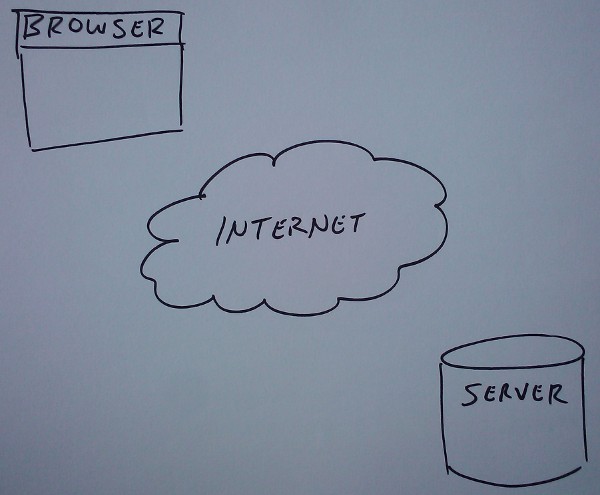 BROWSER
INTERNET
SERVER